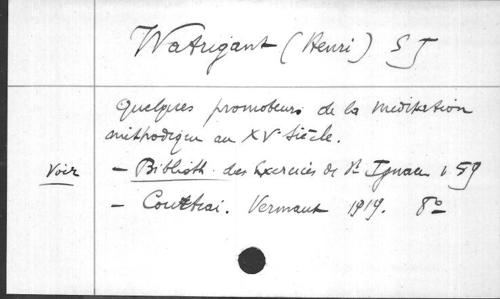 Watrigant (Henri) S J
Quelques promoteurs de la meditation
méthodique au XVe siècle.
Voir – Biblioth. des Exercices de St Ignace n. 59
– Courtrai. Vermaut 1919. 8o